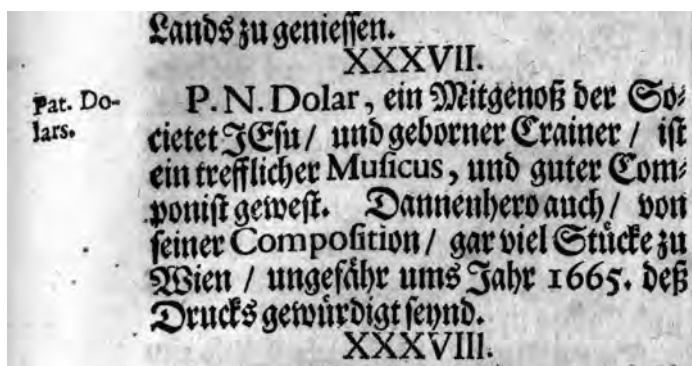 Lands zu geniessen.
XXXVII.
Pat. Do-
lars.
P. N. Dolar, ein Mitgenoß der So-
cietet JEsu / und geborner Crainer / ist
ein trefflicher Musicus, und guter Com-
ponist gewest. Dannenhero auch / von
seiner Composition / gar viel Stücke zu
Wien / ungefähr ums Jahr 1665. deß
Drucks gewürdigt seynd.
XXXVIII.